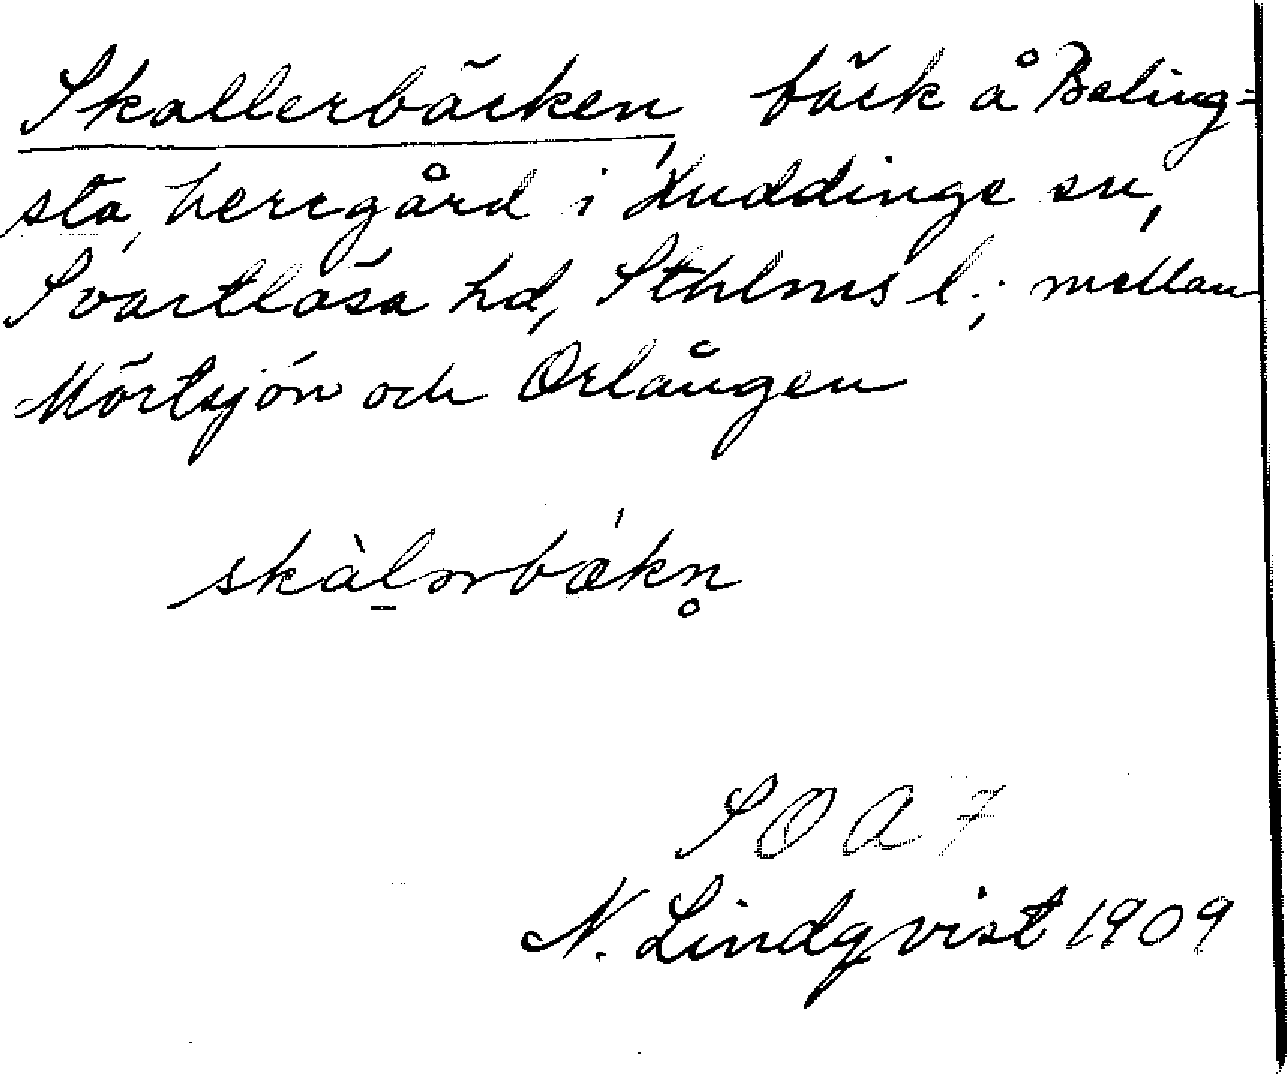 Skallerbäcken, bäck å Beling-
sta, herrgård i Huddinge sn,
Svartlösa hd, Sthlms l.; mellan
Mörtsjön och Orlången
skàlərbækn̥
SOA 7
N. Lindqvist 1909